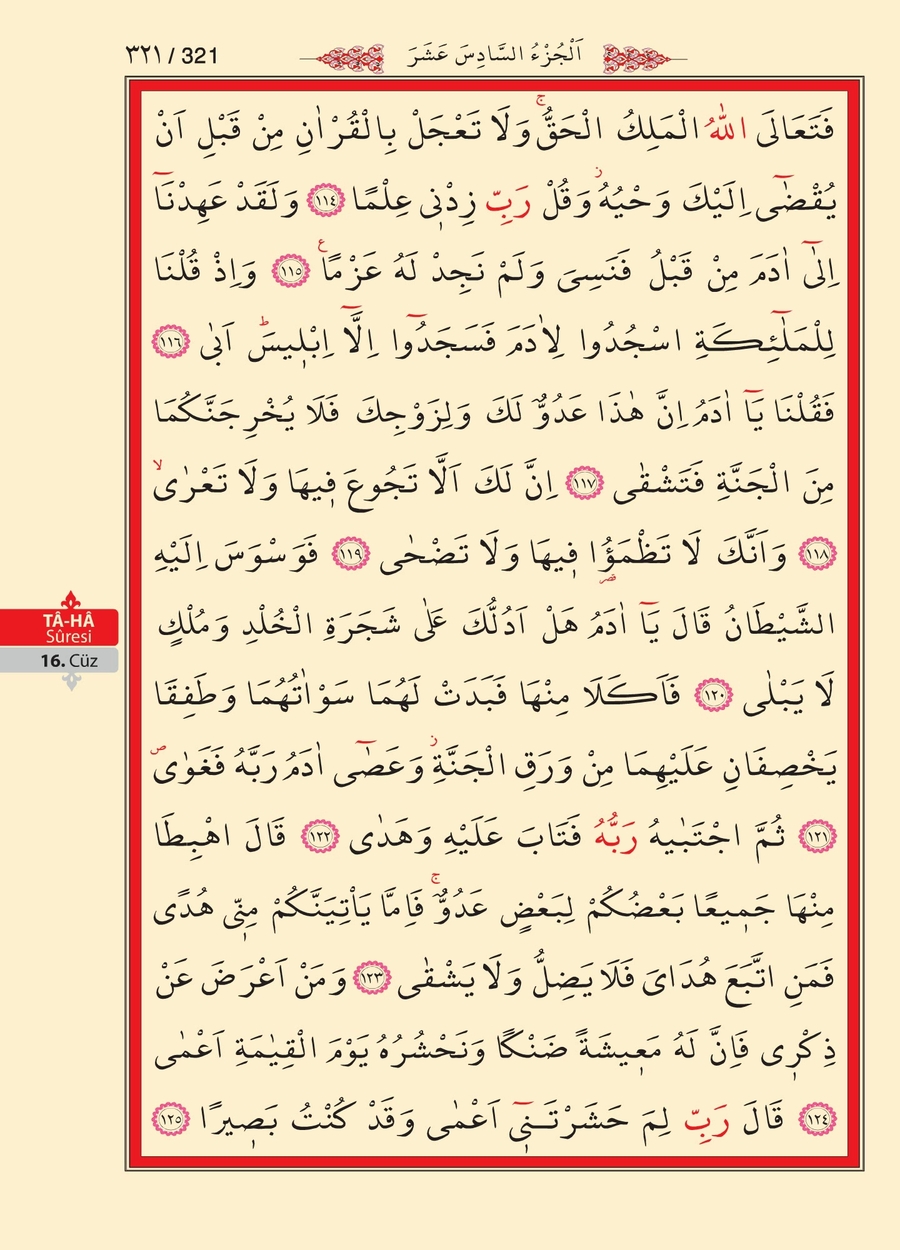 ٣٢١ / 321
اَلْجُزْءُ السَّادِسَ عَشَرَ
فَتَعَالَى اللّٰهُ الْمَلِكُ الْحَقُّۚ وَلَا تَعْجَلْ بِالْقُرْاٰنِ مِنْ قَبْلِ اَنْ
يُقْضٰٓى اِلَيْكَ وَحْيُهُۘ وَقُلْ رَبِّ زِدْنٖى عِلْمًا ﴿١١٤﴾ وَلَقَدْ عَهِدْنَٓا
اِلٰٓى اٰدَمَ مِنْ قَبْلُ فَنَسِىَ وَلَمْ نَجِدْ لَهُ عَزْمًاࣖ ﴿١١٥﴾ وَاِذْ قُلْنَا
لِلْمَلٰٓئِكَةِ اسْجُدُوا لِاٰدَمَ فَسَجَدُٓوا اِلَّٓا اِبْلٖيسَؕ اَبٰى ﴿١١٦﴾
فَقُلْنَا يَٓا اٰدَمُ اِنَّ هٰذَا عَدُوٌّ لَكَ وَلِزَوْجِكَ فَلَا يُخْرِجَنَّكُمَا
مِنَ الْجَنَّةِ فَتَشْقٰى ﴿١١٧﴾ اِنَّ لَكَ اَلَّا تَجُوعَ فٖيهَا وَلَا تَعْرٰىۙ
﴿١١٨﴾ وَاَنَّكَ لَا تَظْمَؤُ۬ا فٖيهَا وَلَا تَضْحٰى ﴿١١٩﴾ فَوَسْوَسَ اِلَيْهِ
الشَّيْطَانُ قَالَ يَٓا اٰدَمُ هَلْ اَدُلُّكَ عَلٰى شَجَرَةِ الْخُلْدِ وَمُلْكٍ
لَا يَبْلٰى ﴿١٢٠﴾ فَاَكَلَا مِنْهَا فَبَدَتْ لَهُمَا سَوْاٰتُهُمَا وَطَفِقَا
يَخْصِفَانِ عَلَيْهِمَا مِنْ وَرَقِ الْجَنَّةِؗ وَعَصٰٓى اٰدَمُ رَبَّهُ فَغَوٰىۖ
﴿١٢١﴾ ثُمَّ اجْتَبٰيهُ رَبُّهُ فَتَابَ عَلَيْهِ وَهَدٰى ﴿١٢٢﴾ قَالَ اهْبِطَا
مِنْهَا جَمٖيعًا بَعْضُكُمْ لِبَعْضٍ عَدُوٌّۚ فَاِمَّا يَاْتِيَنَّكُمْ مِنّٖى هُدًى
فَمَنِ اتَّبَعَ هُدَاىَ فَلَا يَضِلُّ وَلَا يَشْقٰى ﴿١٢٣﴾ وَمَنْ اَعْرَضَ عَنْ
ذِكْرٖى فَاِنَّ لَهُ مَعٖيشَةً ضَنْكًا وَنَحْشُرُهُ يَوْمَ الْقِيٰمَةِ اَعْمٰى
﴿١٢٤﴾ قَالَ رَبِّ لِمَ حَشَرْتَنٖٓى اَعْمٰى وَقَدْ كُنْتُ بَصٖيرًا ﴿١٢٥﴾
TÂ-HÂ
Sûresi
16. Cüz